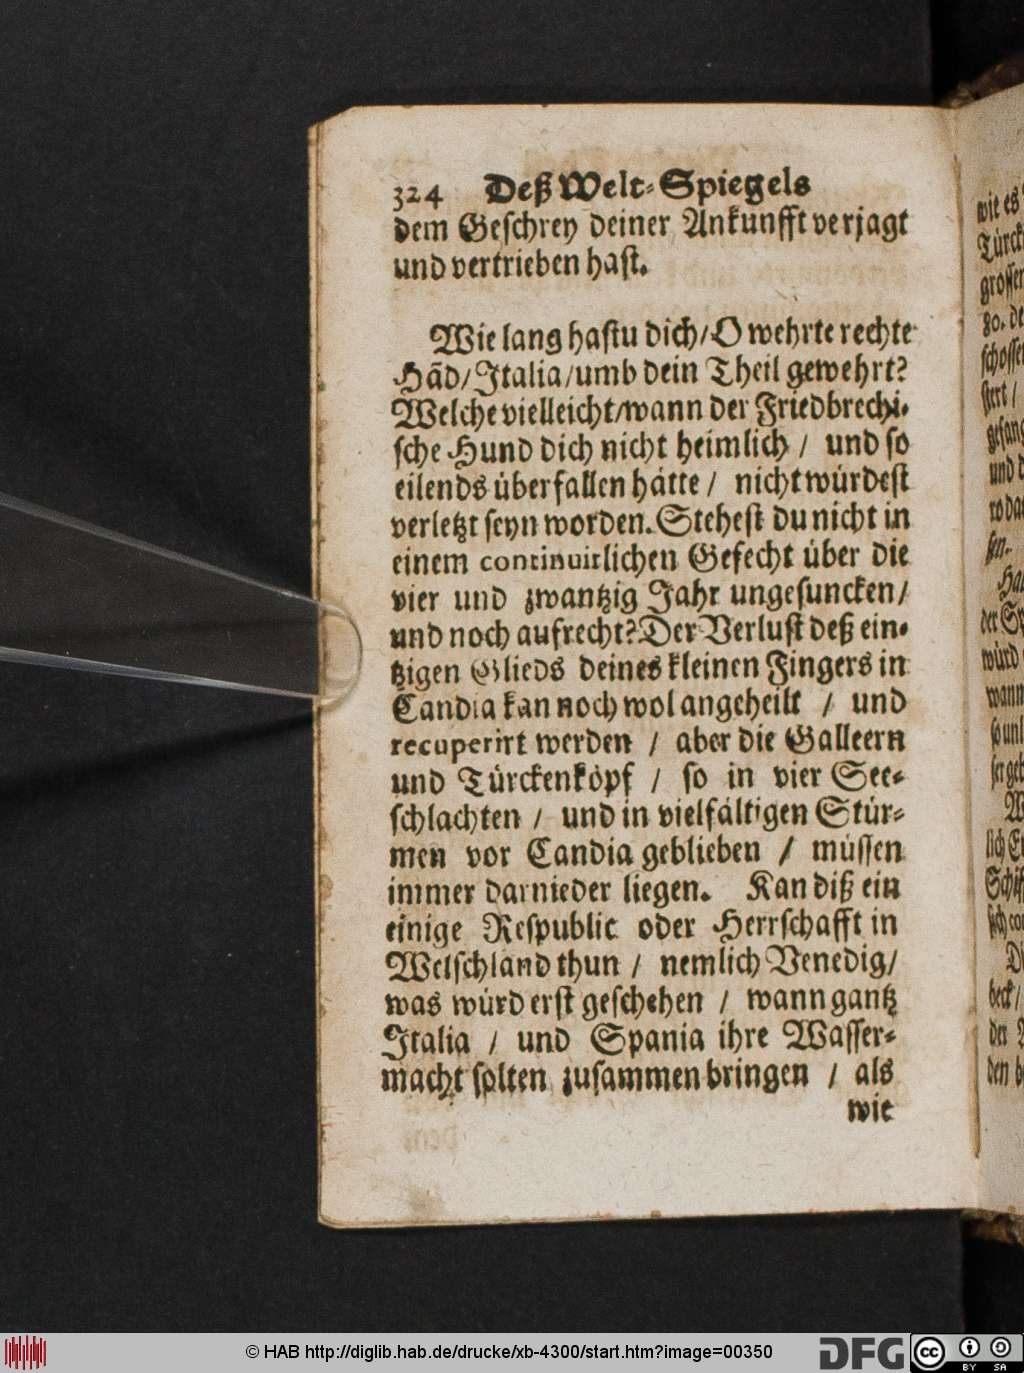 324 Deß Welt-Spiegels
dem Geschrey deiner Ankunfft verjagt
und vertrieben hast.
Wie lang hastu dich/O wehrte rechte
Hãd/Italia/umb dein Theil gewehrt?
Welche vielleicht/wann der Friedbrechi-
sche Hund dich nicht heimlich / und so
eilends überfallen hätte / nicht würdest
verletzt seyn worden. Stehest du nicht in
einem continuirlichen Gefecht über die
vier und zwantzig Jahr ungesuncken/
und noch aufrecht? Der Verlust deß ein-
tzigen Glieds deines kleinen Fingers in
Candia kan noch wol angeheilt / und
recuperirt werden / aber die Galleern
und Türckenköpf / so in vier See-
schlachten / und in vielfältigen Stür-
men vor Candia geblieben / müssen
immer darnieder liegen. Kan diß ein
einige Respublic oder Herrschafft in
Welschland thun / nemlich Venedig/
was würd erst geschehen / wann gantz
Italia / und Spania ihre Wasser-
macht solten zusammen bringen / als
wie
wie es
Türck
grosser
80. de
schossen
stert /
gefang
und d
ro da
sen.
der Sp
würd
wann
so unl
ser geh
lich
Schiff
sich
beck/
der
den b
© HAB http://diglib.hab.de/drucke/xb-4300/start.htm?image=00350
DFG
cc
BY SA